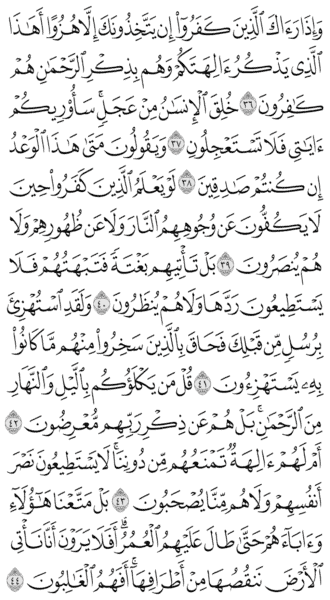 وَإِذَا رَءَاكَ ٱلَّذِينَ كَفَرُوٓا۟ إِن يَتَّخِذُونَكَ إِلَّا هُزُوًا أَهَٰذَا
ٱلَّذِى يَذْكُرُ ءَالِهَتَكُمْ وَهُم بِذِكْرِ ٱلرَّحْمَٰنِ هُمْ
كَٰفِرُونَ ٣٦ خُلِقَ ٱلْإِنسَٰنُ مِنْ عَجَلٍۚ سَأُو۟رِيكُمْ
ءَايَٰتِى فَلَا تَسْتَعْجِلُونِ ٣٧ وَيَقُولُونَ مَتَىٰ هَٰذَا ٱلْوَعْدُ
إِن كُنتُمْ صَٰدِقِينَ ٣٨ لَوْ يَعْلَمُ ٱلَّذِينَ كَفَرُوا۟ حِينَ
لَا يَكُفُّونَ عَن وُجُوهِهِمُ ٱلنَّارَ وَلَا عَن ظُهُورِهِمْ وَلَا
هُمْ يُنصَرُونَ ٣٩ بَلْ تَأْتِيهِم بَغْتَةً فَتَبْهَتُهُمْ فَلَا
يَسْتَطِيعُونَ رَدَّهَا وَلَا هُمْ يُنظَرُونَ ٤٠ وَلَقَدِ ٱسْتُهْزِئَ
بِرُسُلٍ مِّن قَبْلِكَ فَحَاقَ بِٱلَّذِينَ سَخِرُوا۟ مِنْهُم مَّا كَانُوا۟
بِهِۦ يَسْتَهْزِءُونَ ٤١ قُلْ مَن يَكْلَؤُكُم بِٱلَّيْلِ وَٱلنَّهَارِ
مِنَ ٱلرَّحْمَٰنِۚ بَلْ هُمْ عَن ذِكْرِ رَبِّهِم مُّعْرِضُونَ ٤٢
أَمْ لَهُمْ ءَالِهَةٌ تَمْنَعُهُم مِّن دُونِنَاۚ لَا يَسْتَطِيعُونَ نَصْرَ
أَنفُسِهِمْ وَلَا هُم مِّنَّا يُصْحَبُونَ ٤٣ بَلْ مَتَّعْنَا هَٰٓؤُلَآءِ
وَءَابَآءَهُمْ حَتَّىٰ طَالَ عَلَيْهِمُ ٱلْعُمُرُۗ أَفَلَا يَرَوْنَ أَنَّا نَأْتِى
ٱلْأَرْضَ نَنقُصُهَا مِنْ أَطْرَافِهَآۚ أَفَهُمُ ٱلْغَٰلِبُونَ ٤٤